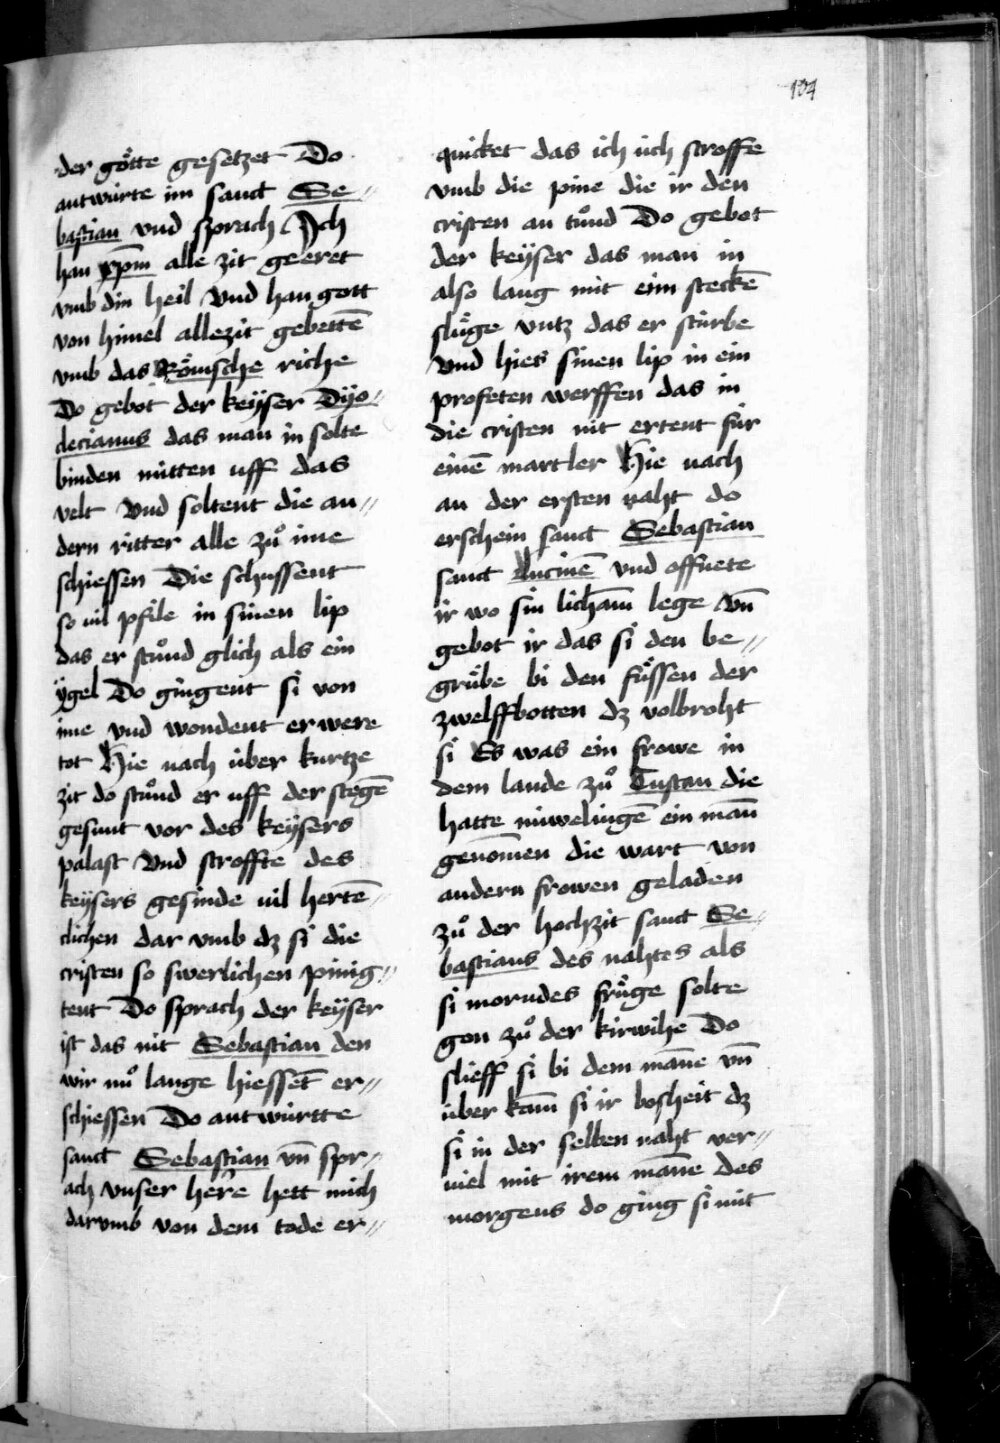 104
der goͤtte gesetzet Do
antwürte im sanct Se⸗
bastian vnd sprach Ich
han xp̄m alle zit geeret
vmb din heil Vnd han gott
von himel allezit gebettē
vmb das Roͤmsche riche
Do gebot der keÿser Dÿo⸗
clecianus das man in solte
binden mitten uff das
velt Vnd soltent die an⸗
dern ritter alle zuͦ ime
schiessen Die schussent
so uil pfile in sinen lip
das er stuͦnd glich als ein
ÿgel Do gingent si von
ime vnd wondent er were
tot Hie nach über kurtze
zit do stuͦnd er uff der stegē
gesunt vor des keÿsers
palast Vnd stroffte des
keÿsers gesinde uil hertē⸗
clichen dar vmb dz si die
cristen so swerlichen pinig⸗
tent Do sprach der keÿser
ist das nit Sebastian den
wir nuͦ lange hiessēt er⸗
schiessen Do antwürtte
sanct Sebastian vn̄ spr⸗
ach vnser here hett mich
darvmb von dem tode er⸗
quicket das ich üch stroffe
vmb die pine die ir den
cristen an tuͦnd Do gebot
der keÿser das man in
also lang mit eim steckē
sluͤge vntz das er stürbe
Vnd hies sinen lip in ein
profeten werffen das in
die cristen nit ertent für
einē martler Hie nach
an der ersten naht do
erschein sanct Sebastian
sanct Lucinē vnd offnete
ir wo sin lichā̄m lege Vn̄
gebot ir das si den be⸗
gruͤbe bi den fuͤssen der
zwelffbotten dz volbroht
si Es was ein frowe in
dem lande zuͦ Tustan die
hatte nüwelingē ein mā̄n
genōmen die wart von
andern frowen geladen
zuͦ der hochzit sanct Se⸗
bastians des nahtes als
si morndes fruͤge solte
gon zuͦ der kirwihe Do
slieff si bi dem mā̄ne vn̄
über kam̄ si ir bosheit dz
si in der selben naht ver⸗
uiel mit irem mā̄ne des
morgens do ging si mit